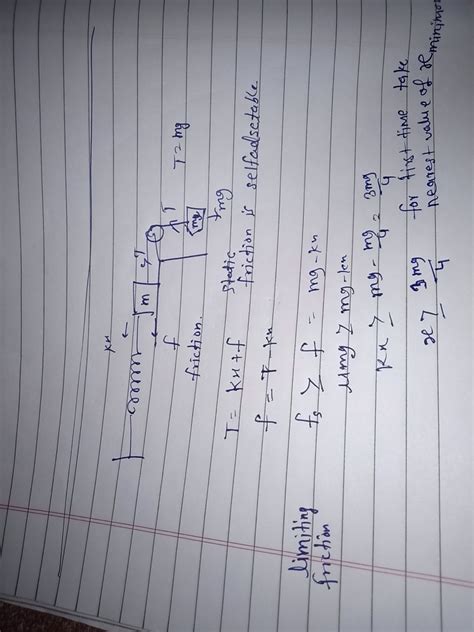 kx
m
T
T
mg
mg
T = mg
f
friction.
T = kx + f
static
friction is selfadsctable.
f = T - kx
limiting
friction
fs ≥ f = mg - kx
μmg ≥ mg - kx
kx ≥ mg - mg/4 = 3mg/4
for first time take
x ≥ 3mg/4 nearest value of x minimum